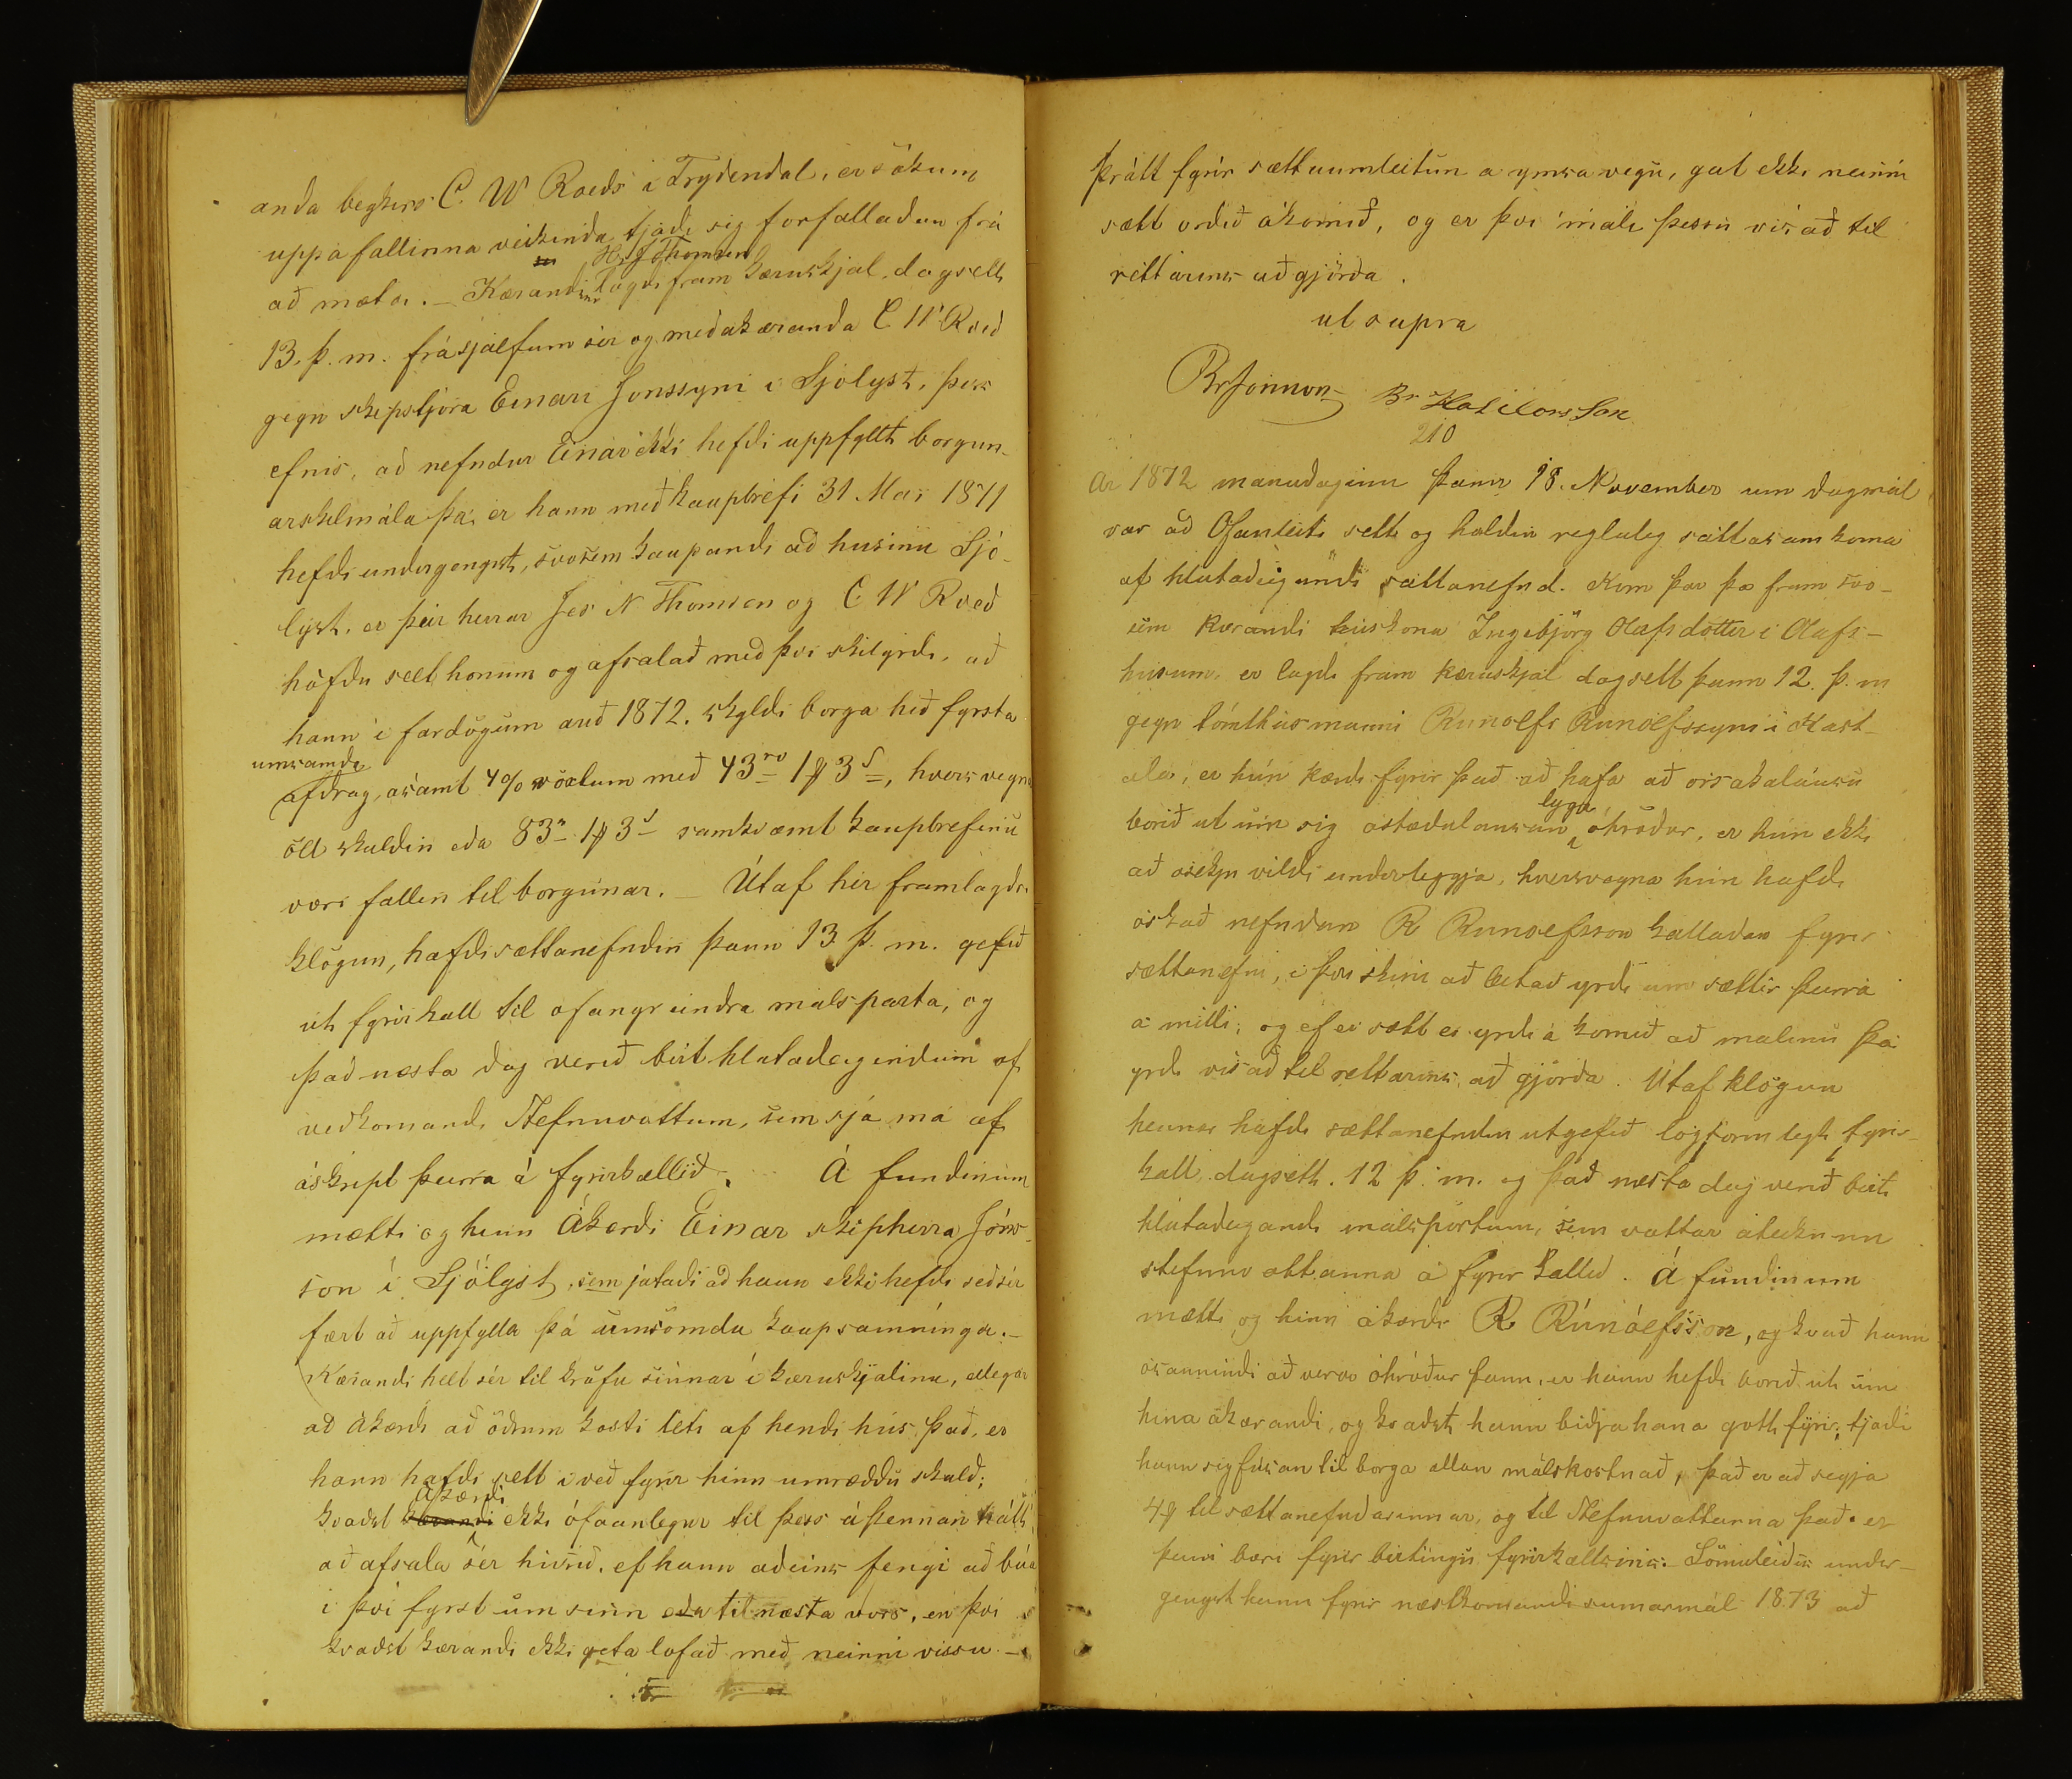 anda begkers C. W Roeds i Frydendal, er sökum
uppá fallinna veikinda tjáði sig forfalladan frá
að mæta. – Kærandinn H. J Thomsen lagði fram kæruskjal, dagsett
13. þ. m. frá sjálfum sér og meðakæranda C W Roed
gegn skipstjóra Einari Jonssyni i Sjólyst, þess
efnis, að nefndur Einar ekki hefði uppfyllt borgun-
arskilmála þá, er hann með kaupbréfi 31 Mai 1871
hefdi undirgengist, svosem kaupandi að husinu Sjó-
lyst, er þeir herrar Jes N Thomsen og C W Roed
höfdu selt honum og afsalað með því skilyrdi, að
hann i fardögum arið 1872. skyldi borga hið fyrsta
umsamda
afdrag, asamt 4% vöxtum með 43rd 1# 3s, hvers vegna
öll skuldin eda 83rd 1# 3s samkvæmt kaupbréfinu
væri fallin til borgunar. – Útaf hér framlagdri
klögun, hafdi sættanefndin þann 13 þ. m. gefið
út fyrirkall til ofangreindra málsparta, og
það næsta dag verið birt hlutadeigendum af
vedkomandi Stefnuvottum, sem sjá má af
áskript þeirra á fyrirkallið. Á fundinum
mætti og hinn Ákærdi Einar skipherra Jóns-
son í Sjólyst, sem játaði að hann ekki hefdi séð sér
fært að uppfylla þá umsömdu kaupsamninga. –
Kærandi helt sér til kröfu sinnar í kæruskjalinu, ellegar
að ákærdi að öðrum kosti léti af hendi hús það, er
hann hafdi sett i veð fyrir hinn umræddu skuld;
Akærdi
kvadst ekki ófáanlegur til þess á þennan hátt
að afsala sér húsið, ef hann adeins fengi að búa
i því fyrst um sinn eda til næsta vors, en því
kvadst kærandi ekki geta lofað með neinni vissu –
þrátt fyrir sættaumleitun a ymsa vegu, gat ekki neinni
sætt ordið ákomið, og er því máli þessu vísað til
réttarins adgjörda.
ut supra
BrJonsson Br
210
Ar 1872 manudaginn þann 18. November um dagmál
var að Ofanleiti sett og haldin regluleg sáttasamkoma
af hlutadeigandi sáttanefnd. Kom þar þa fram svo-
sem kærandi húskona Ingibjörg Olafsdottir i Olafs-
husum, er lagdi fram kæruskjal dagsett þann 12. þ. m
gegn tómthúsmanni Runolfi Runólfssyni i Kast-
ala, er hún kærdi fyrir það að hafa að orsakalausu
borið ut um sig astædulausan lyga óhródur, er hún ekki
að osekju vildi undirleggja, hversvegna hún hafdi
óskað nefndan R Runolfsson kalladan fyrir
sættanefni, i því skini að leitað yrdi um sættir þeirra
a milli, og ef ei sætt ei yrdi á komið að malinu þá
yrdi vísað til rettarins að gjörda. Útaf klögun
hennar hafdi sættanefndin utgefið lögformlegt fyrir-
kall, dagsett. 12 þ. m. og það næsta dag verið birt
hlutadeigandi málspörtum, sem vottar áteiknun
stefnuvottanna á fyrirkallið. Á fundinum
mætti og hinn ákærdi R Rúnólfsson, og kvað hann
ósannindi að vera óhróður þann, er hann hefdi borið út um
hina ákærandi, og kvadst hann bidja hana gott fyrir, tjádi
hann sig fúsan til borga allan málskostnað, það er að segja
4# til sættanefndarinnar, og til Stefnuvottanna það er
þeim bæri fyrir birtingu fyrirkallsins. Sömuleidis undir-
gengst hann fyrir næstkomandi sumarmál 1873 að